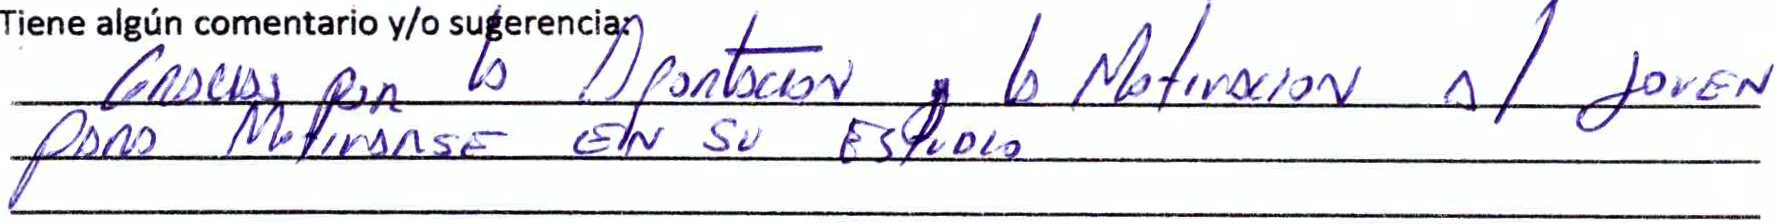 Tiene algún comentario y/o sugerencia:
Gracias por la Aportacion y la Motivacion al joven
para Motivarse En su Estudio